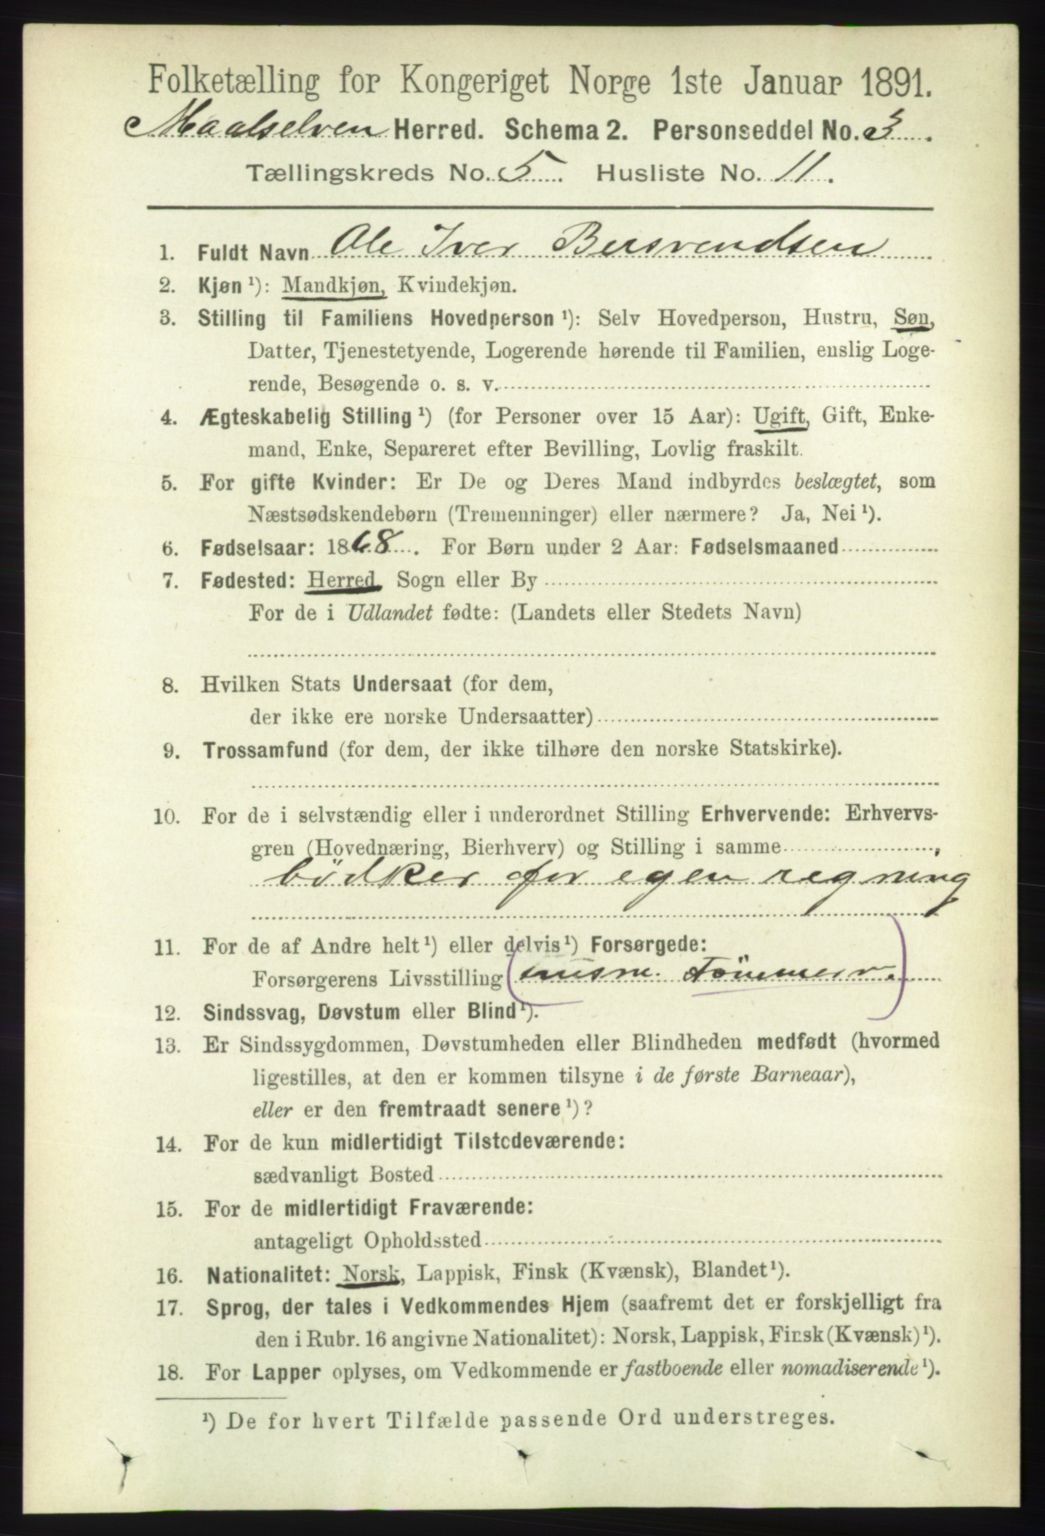 Folketælling for Kongeriget Norge 1ste Januar 1891.
Maalselven Herred. Schema 2. Personseddel No. 3.
Tællingskreds No. 5. Husliste No. 11.
1. Fuldt Navn Ole Iver Bersvendsen
2. Kjøn ¹): Mandkjøn, Kvindekjøn.
3. Stilling til Familiens Hovedperson ¹): Selv Hovedperson, Hustru, Søn,
Datter, Tjenestetyende, Logerende hørende til Familien, enslig Loge-
rende, Besøgende o. s. v.
4. Ægteskabelig Stilling ¹) (for Personer over 15 Aar): Ugift, Gift, Enke-
mand, Enke, Separeret efter Bevilling, Lovlig fraskilt.
5. For gifte Kvinder: Er De og Deres Mand indbyrdes beslægtet, som
Næstsødskendebørn (Tremenninger) eller nærmere? Ja, Nei ¹).
6. Fødselsaar: 1868. For Børn under 2 Aar: Fødselsmaaned
7. Fødested: Herred, Sogn eller By
For de i Udlandet fødte: (Landets eller Stedets Navn)
8. Hvilken Stats Undersaat (for dem,
der ikke ere norske Undersaatter)
9. Trossamfund (for dem, der ikke tilhøre den norske Statskirke).
10. For de i selvstændig eller i underordnet Stilling Erhvervende: Erhvervs-
gren (Hovednæring, Bierhverv) og Stilling i samme
bödker for egen regning
11. For de af Andre helt ¹) eller delvis ¹) Forsørgede:
Forsørgerens Livsstilling (husm. Tömmerv.)
12. Sindssvag, Døvstum eller Blind ¹).
13. Er Sindssygdommen, Døvstumheden eller Blindheden medfødt (hvormed
ligestilles, at den er kommen tilsyne i de første Barneaar),
eller er den fremtraadt senere ¹)?
14. For de kun midlertidigt Tilstedeværende:
sædvanligt Bosted
15. For de midlertidigt Fraværende:
antageligt Opholdssted
16. Nationalitet: Norsk, Lappisk, Finsk (Kvænsk), Blandet ¹).
17. Sprog, der tales i Vedkommendes Hjem (saafremt det er forskjelligt fra
den i Rubr. 16 angivne Nationalitet): Norsk, Lappisk, Finsk (Kvænsk) ¹).
18. For Lapper oplyses, om Vedkommende er fastboende eller nomadiserende ¹).
¹) De for hvert Tilfælde passende Ord understreges.